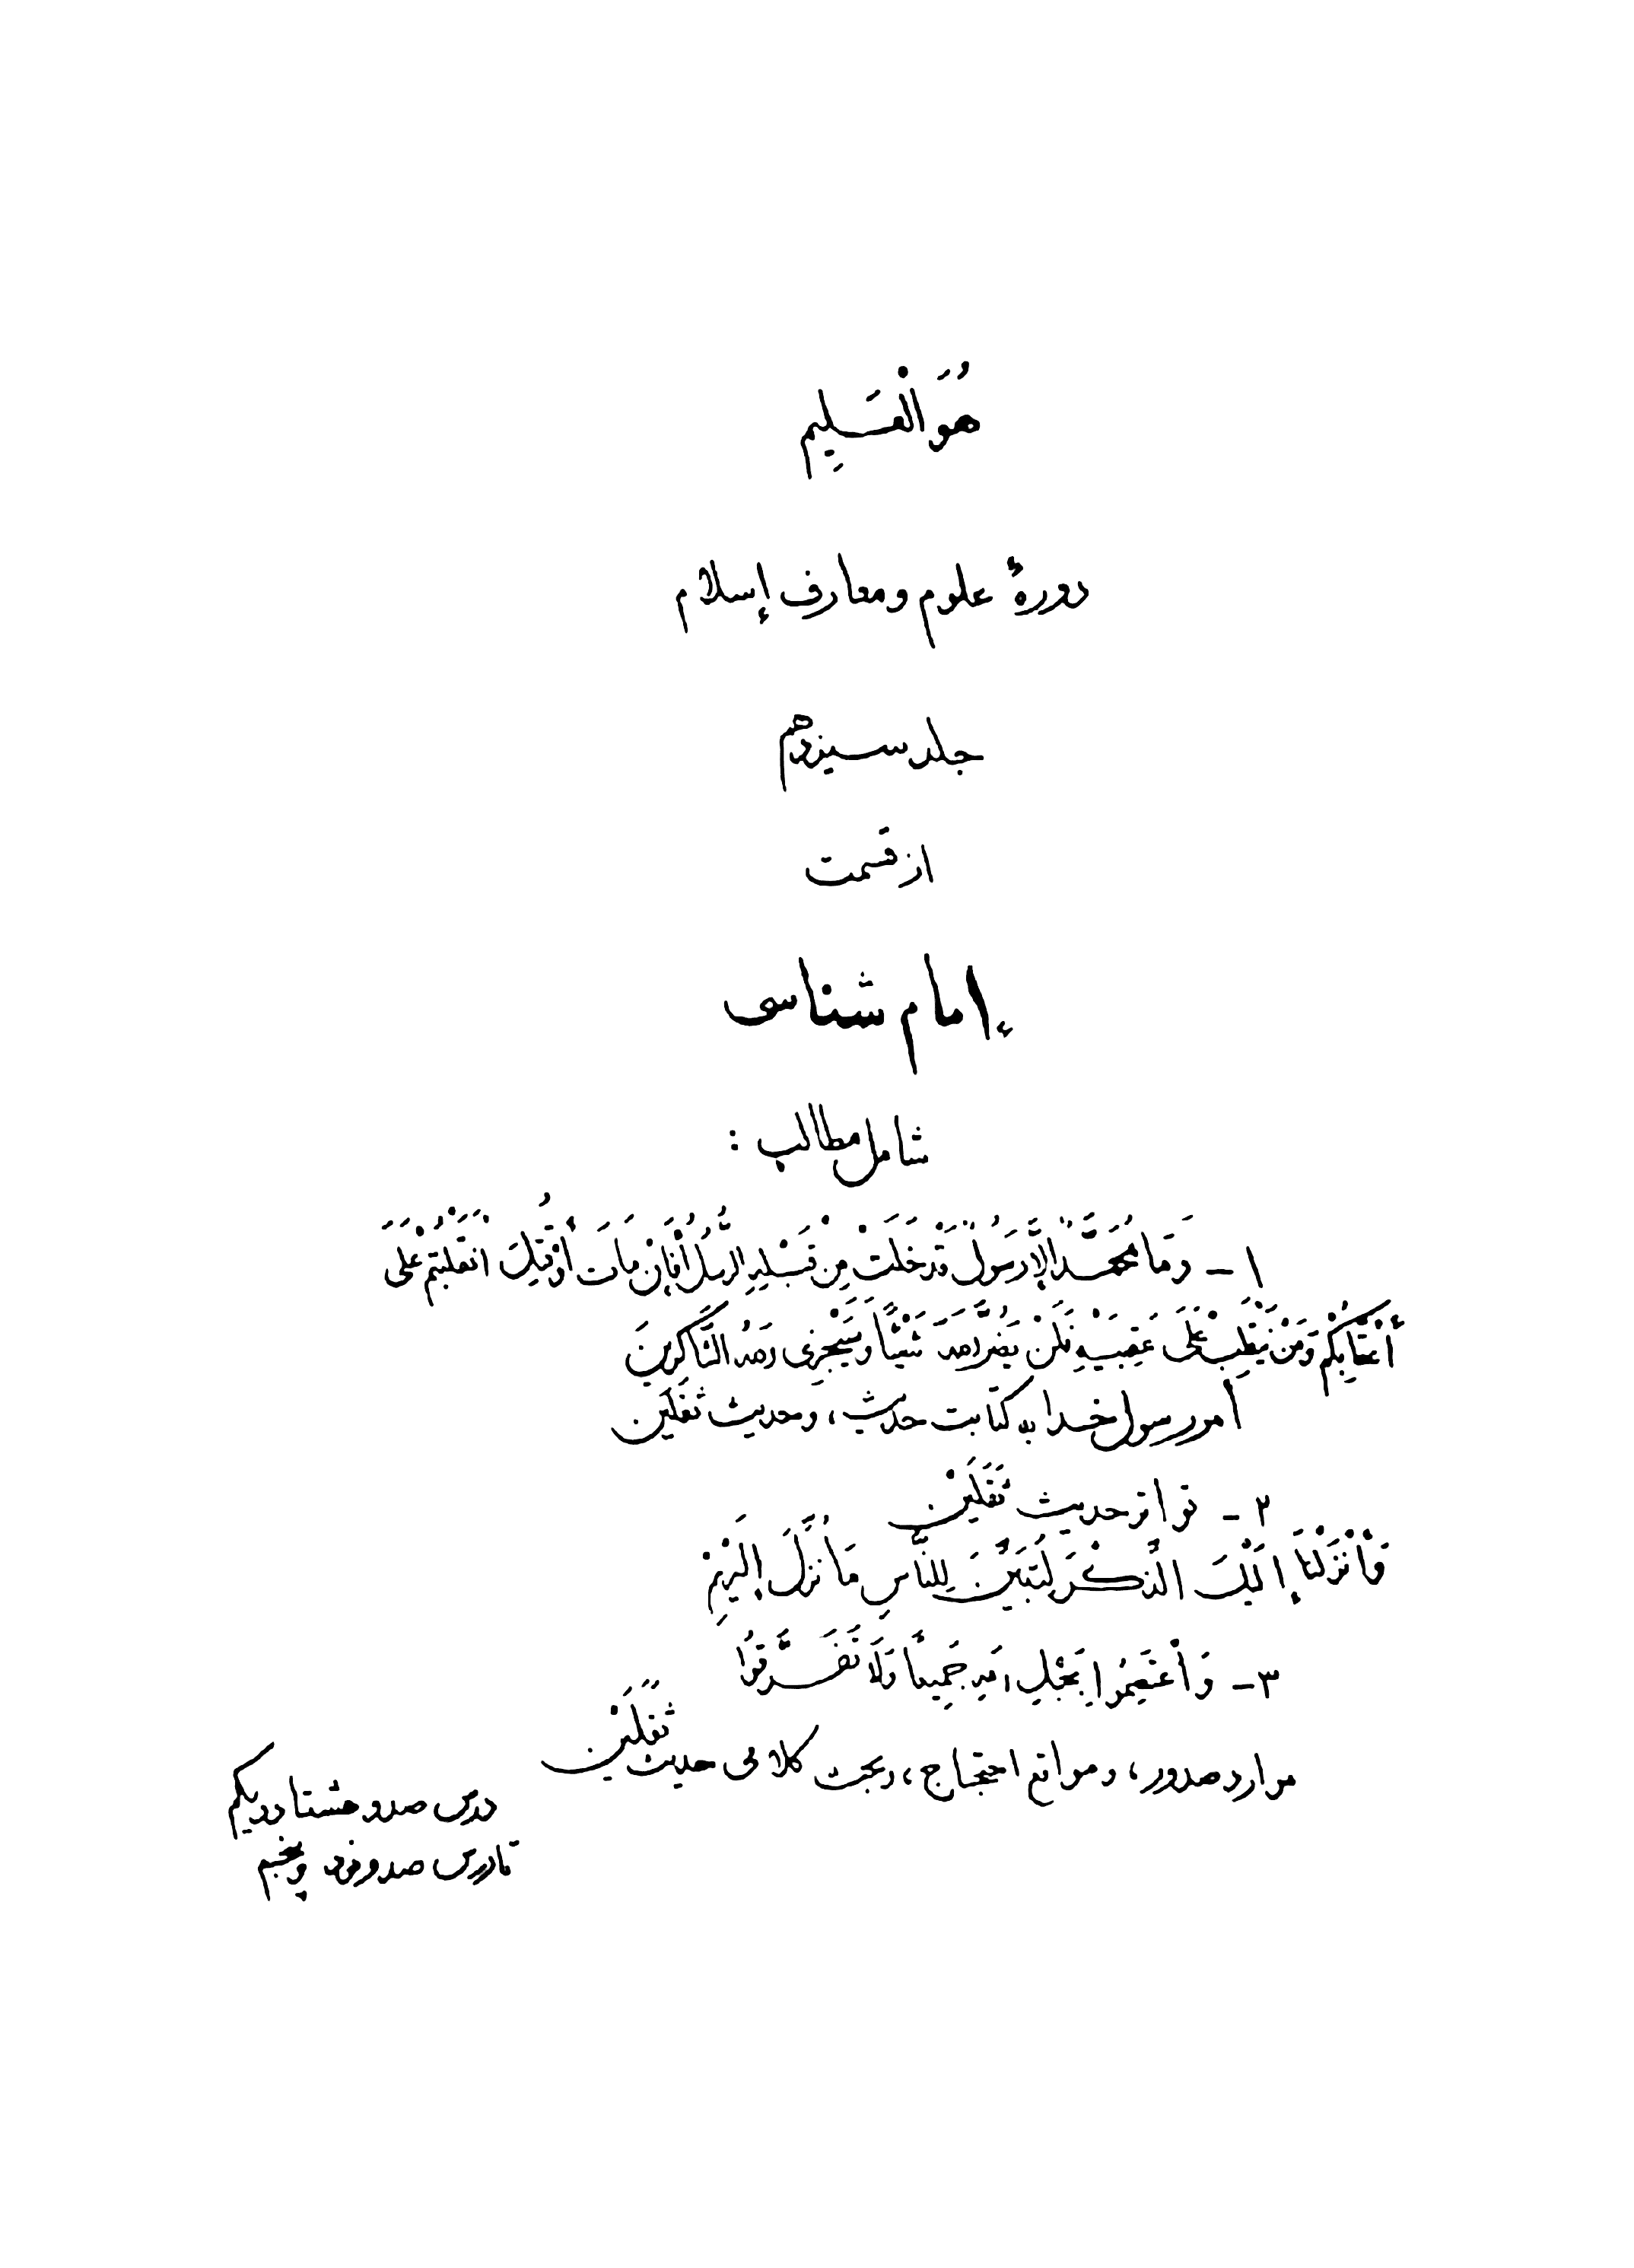 هُوَ الْعَـلِيم
دورهٔ علوم و معارف إسلام
جلد سـيزدهم
از قسمت
إمام شناسى
شامل مطالب :
١ - وَمَا مُحَمَّدٌ إِلَّا رَسُولٌ قَدْ خَلَتْ مِنْ قَبْلِهِ الرُّسُلُ أَفَإِنْ مَاتَ أَوْ قُتِلَ انْقَلَبْتُمْ عَلَى
أَعْقَابِكُمْ وَمَنْ يَنْقَلِبْ عَلَى عَقِبَيْهِ فَلَنْ يَضُرَّ اللهَ شَيْئًا وَسَيَجْزِى اللهُ الشَّاكِرِينَ
أمر رسول خدا به كتابت حديث، و حديث ثَقَلَيْن
٢ - تواتر حديث ثَقَلَيْن
وَأَنْزَلْنَا إِلَيْكَ الذِّكْرَ لِتُبَيِّنَ لِلنَّاسِ مَا نُزِّلَ إِلَيْهِمْ
٣ - وَاعْتَصِمُوا بِحَبْلِ اللهِ جَمِيعًا وَلَا تَفَرَّقُوا
موارد صدور، و مواقع احتجاج، و بحث كلامى حديث ثَقَلَيْن
درس صد و هشتاد و يكم
تا درس صد و نود و پنجم